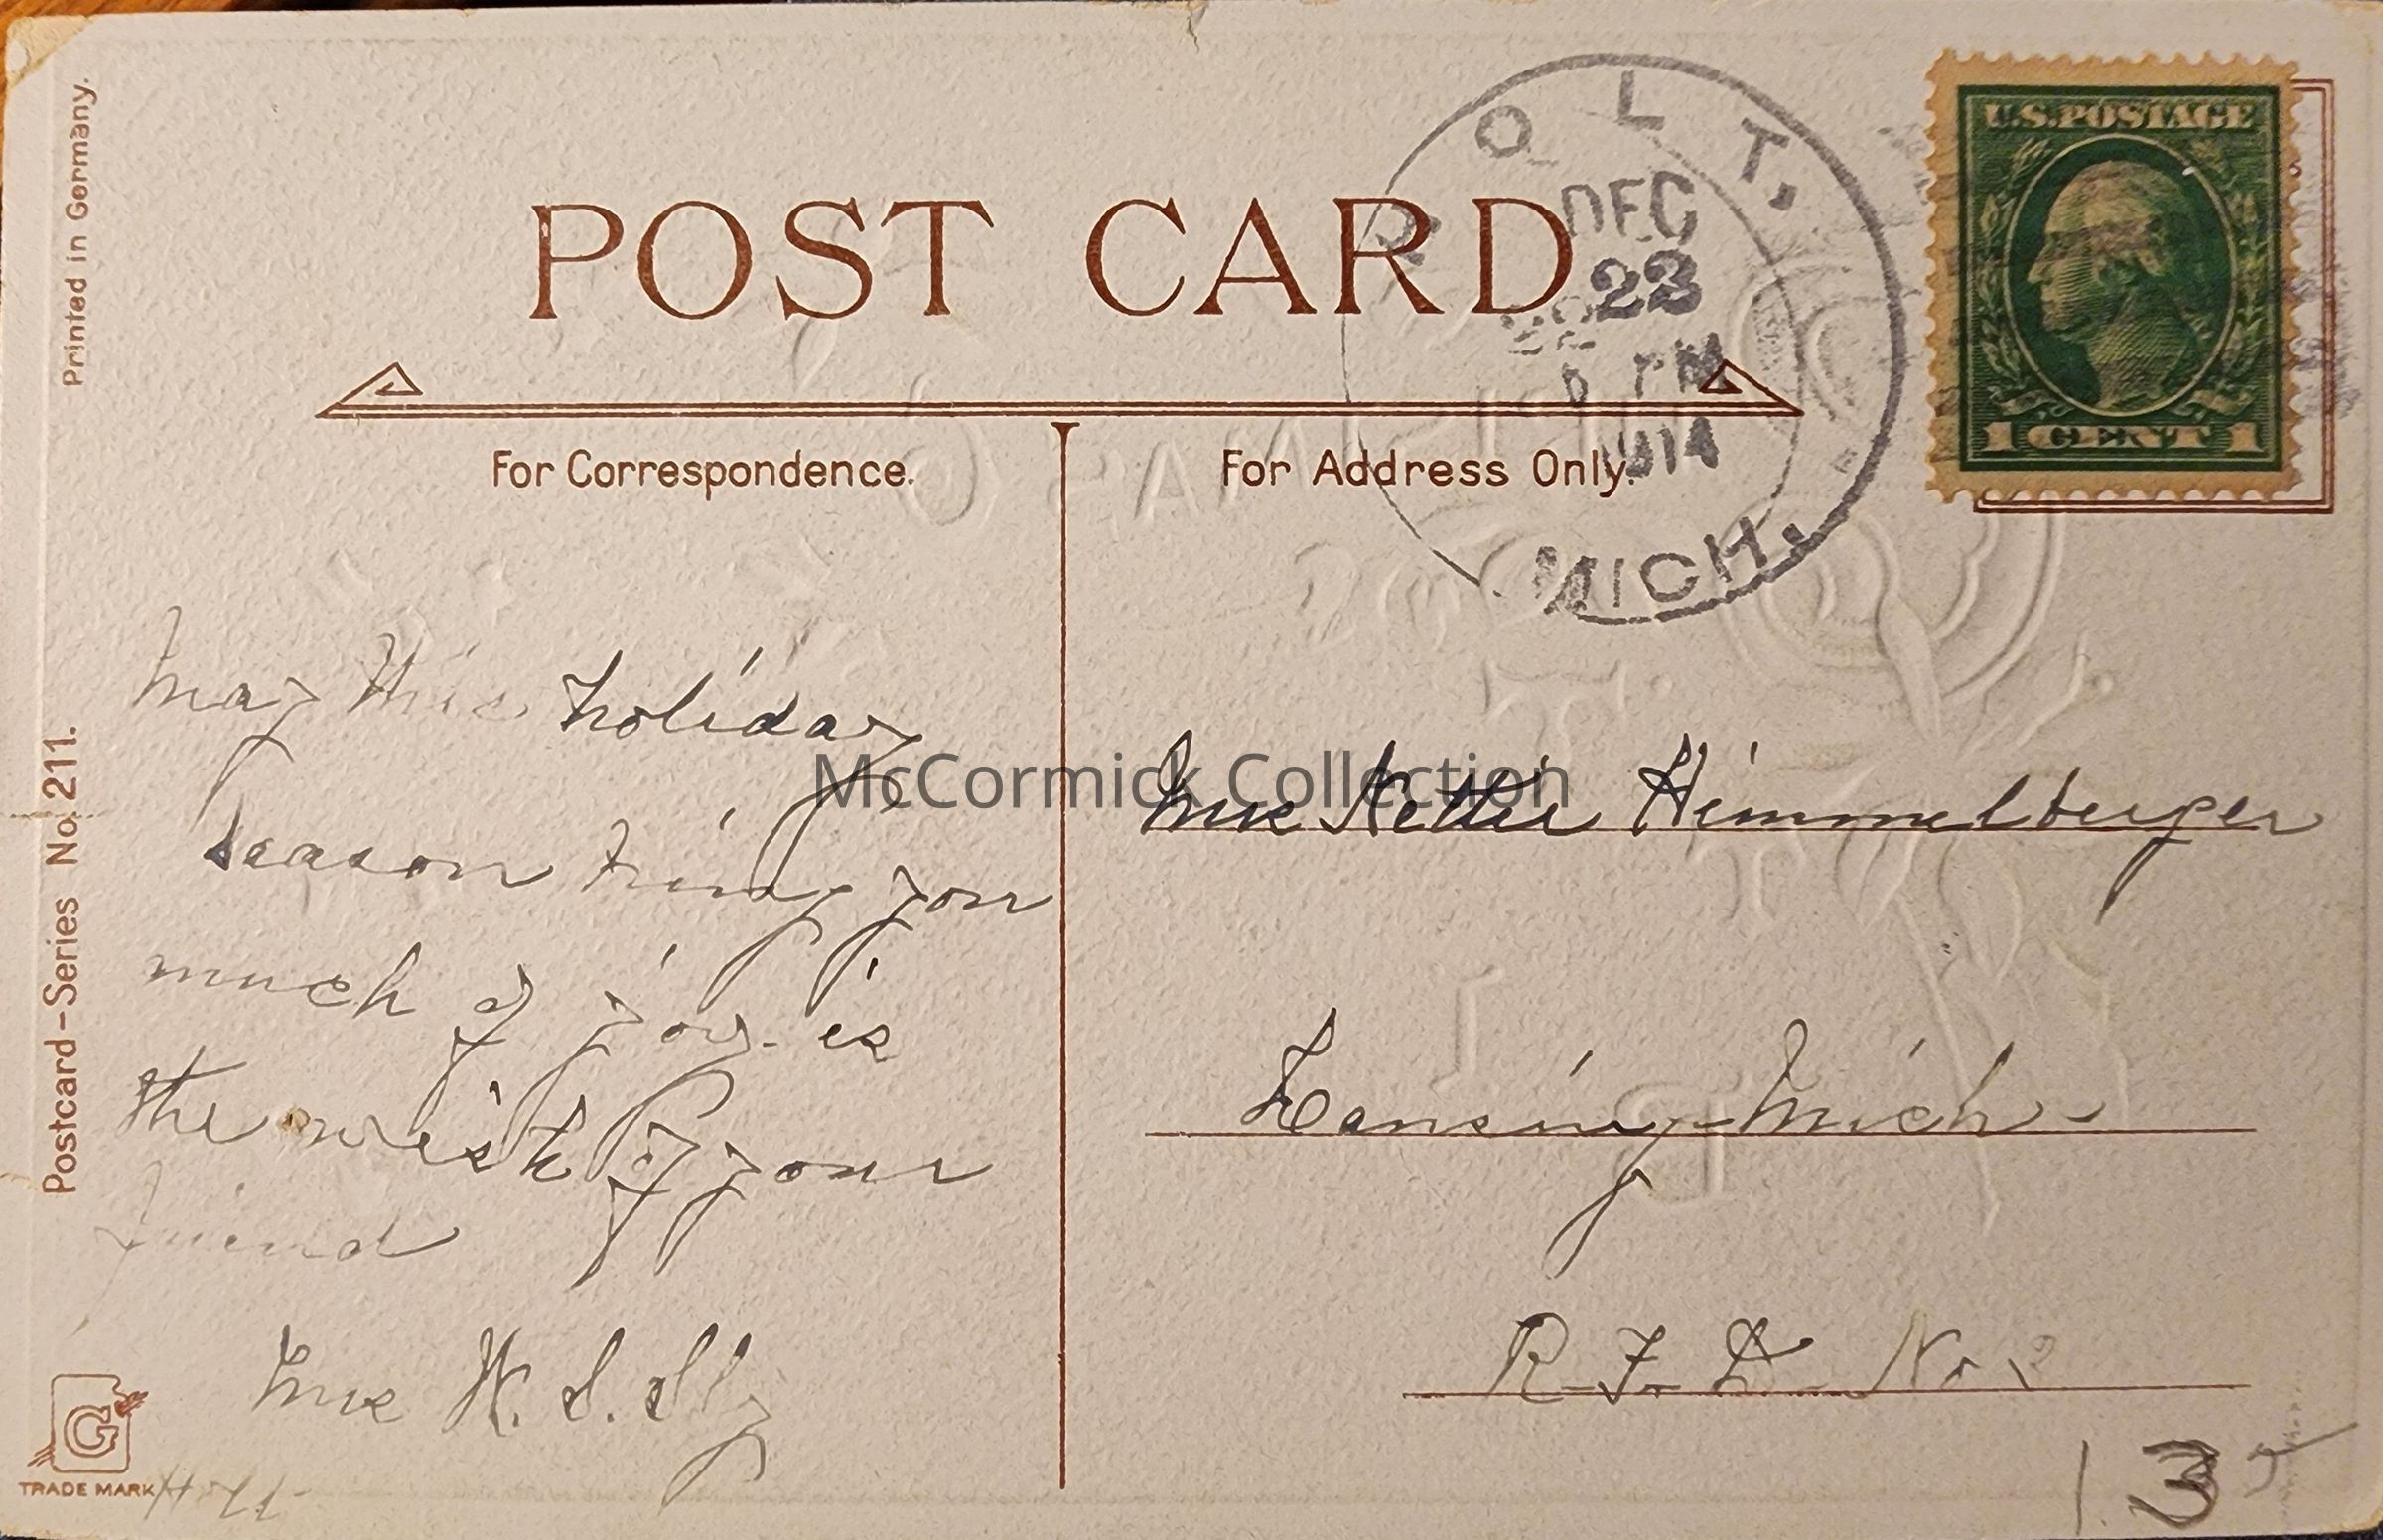 Printed in Germany.
POST CARD
U.S. POSTAGE
1 CENT 1
HOLT,
DEC
1914
MICH.
For Correspondence.
For Address Only.
May this holiday
season bring you
much of joy. is
the wish of your
friend
Mrs
McCormick Collection
Mrs Nettie Himmelberger
Lansing Mich
R. F. D. No 2
Postcard-Series No. 211.
G
TRADE MARK
1.35